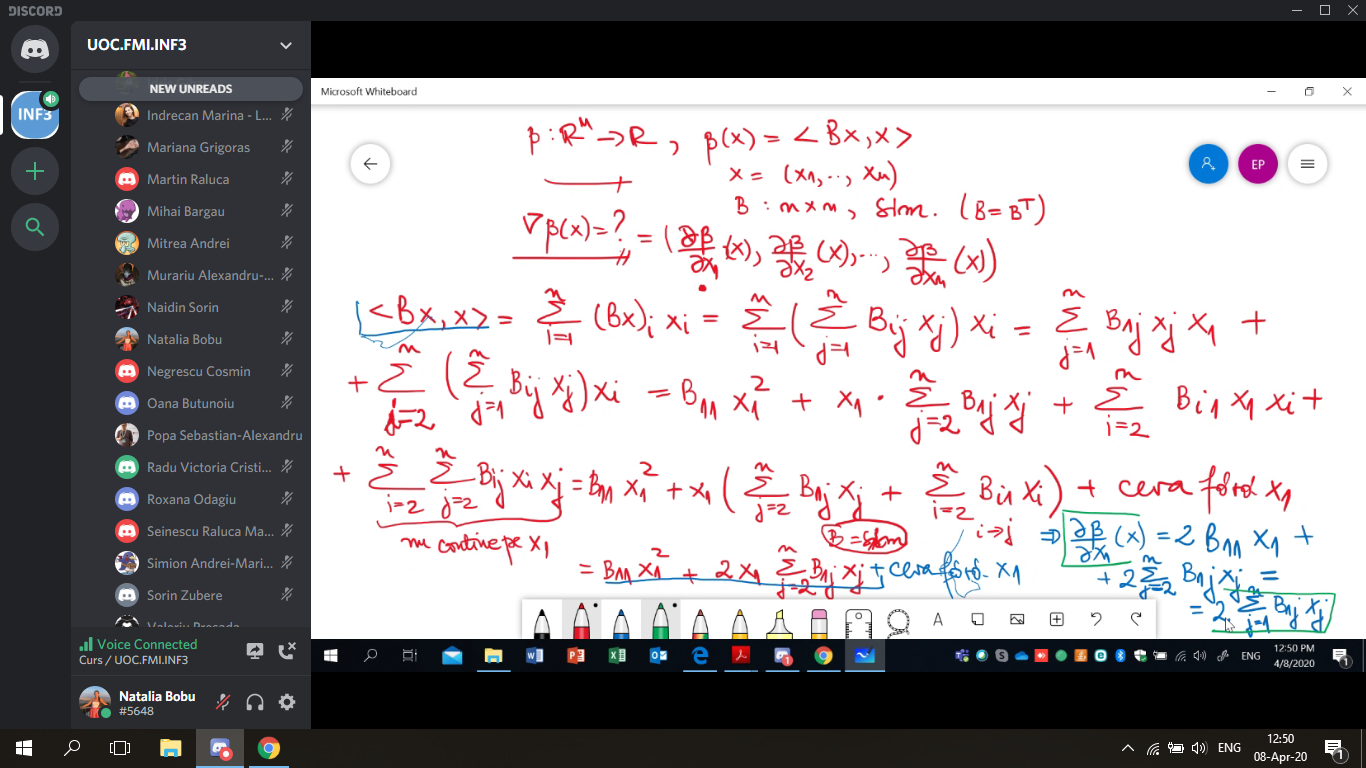 DISCORD
UOC.FMI.INF3
NEW UNREADS
INF3
Indrecan Marina - L...
Mariana Grigoras
Martin Raluca
Mihai Bargau
Mitrea Andrei
Murariu Alexandru-...
Naidin Sorin
Natalia Bobu
Negrescu Cosmin
Oana Butunoiu
Popa Sebastian-Alexandru
Radu Victoria Cristi...
Roxana Odagiu
Seinescu Raluca Ma...
Simion Andrei-Mari...
Sorin Zubere
Valeriu Presada
Voice Connected
Curs / UOC.FMI.INF3
Natalia Bobu
#5648
Microsoft Whiteboard
EP
β : ℝⁿ → ℝ , β(x) = < Bx, x >
x = (x₁, .., xₙ)
B : n × n, sim. (B = Bᵀ)
∇β(x) = ? = (∂β/∂x₁ (x), ∂β/∂x₂ (x), .., ∂β/∂xₙ (x))
<Bx, x> = ∑_{i=1}^{n} (Bx)ᵢ xᵢ = ∑_{i=1}^{n} (∑_{j=1}^{n} Bᵢⱼ xⱼ) xᵢ = ∑_{j=1}^{n} B₁ⱼ xⱼ x₁ +
+ ∑_{i=2}^{n} (∑_{j=1}^{n} Bᵢⱼ xⱼ) xᵢ = B₁₁ x₁² + x₁ · ∑_{j=2}^{n} B₁ⱼ xⱼ + ∑_{i=2}^{n} Bᵢ₁ x₁ xᵢ +
+ ∑_{i=2}^{n} ∑_{j=2}^{n} Bᵢⱼ xᵢ xⱼ = B₁₁ x₁² + x₁ (∑_{j=2}^{n} B₁ⱼ xⱼ + ∑_{i=2}^{n} Bᵢ₁ xᵢ) + ceva fără x₁
nu conține pe x₁
B = sim
i → j
= B₁₁ x₁² + 2 x₁ ∑_{j=2}^{n} B₁ⱼ xⱼ + ceva fără x₁
⇒ ∂β/∂x₁ (x) = 2 B₁₁ x₁ +
+ 2 ∑_{j=2}^{n} B₁ⱼ xⱼ =
= 2 ∑_{j=1}^{n} B₁ⱼ xⱼ
A
ENG
12:50 PM
4/8/2020
1
ENG
12:50
08-Apr-20
1